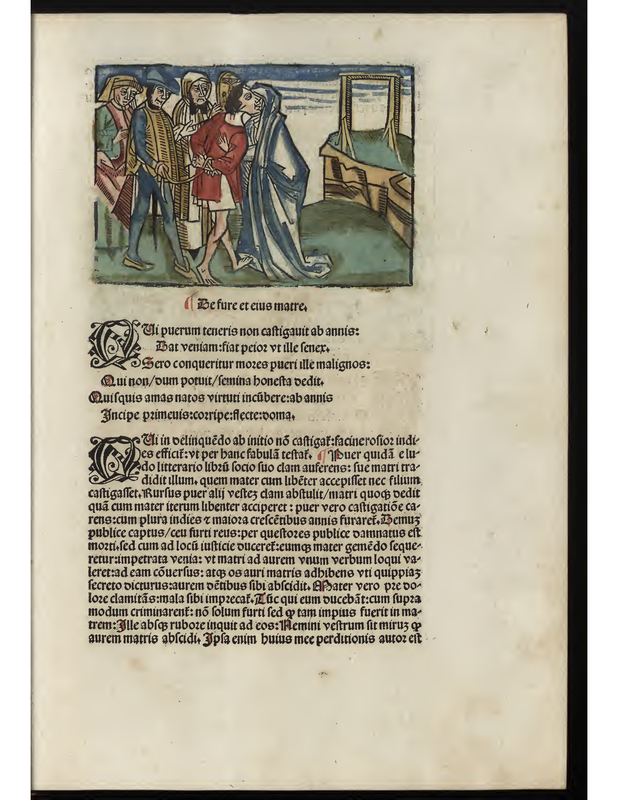 ¶ De fure et eius matre.
QUi puerum teneris non castigauit ab annis:
Dat veniam:fiat peior vt ille senex.
Sero conqueritur mores pueri ille malignos:
Qui non/dum potuit/semina honesta dedit.
Quisquis amas natos virtuti incūbere:ab annis
Incipe primeuis:corripe:flecte:doma.
QUi in delinquēdo ab initio nō castigat̄:facinerosior indi-
es efficit̄:vt per hanc fabulā testat̄. ¶ Puer quidā e lu-
do litterario librū socio suo clam auferens: sue matri tra-
didit illum. quem mater cum libēter accepisset nec filium
castigasset. Rursus puer alij vestez clam abstulit/matri quoqȝ dedit
quā cum mater iterum libenter acciperet : puer vero castigatiōe ca-
rens:cum plura indies ⁊ maiora crescētibus annis furaret̄. Demuz
publice captus/ceu furti reus:per questores publice damnatus est
morti. sed cum ad locū iusticie duceret̄:eumqȝ mater gemēdo seque-
retur:impetrata venia: vt matri ad aurem vnum verbum loqui va-
leret:ad eam cōuersus: atqȝ os auri matris adhibens vti quippiaȝ
secreto dicturus:aurem dētibus sibi abscidit. Mater vero pre do-
lore clamitās:mala sibi imprecat̄. Tūc qui eum ducebāt:cum supra
modum criminarent̄: nō solum furti sed ꝙ tam impius fuerit in ma-
trem:Ille absqȝ rubore inquit ad eos:Nemini vestrum sit miruȝ ꝙ
aurem matris abscidi. Ipsa enim huius mee perditionis autor est